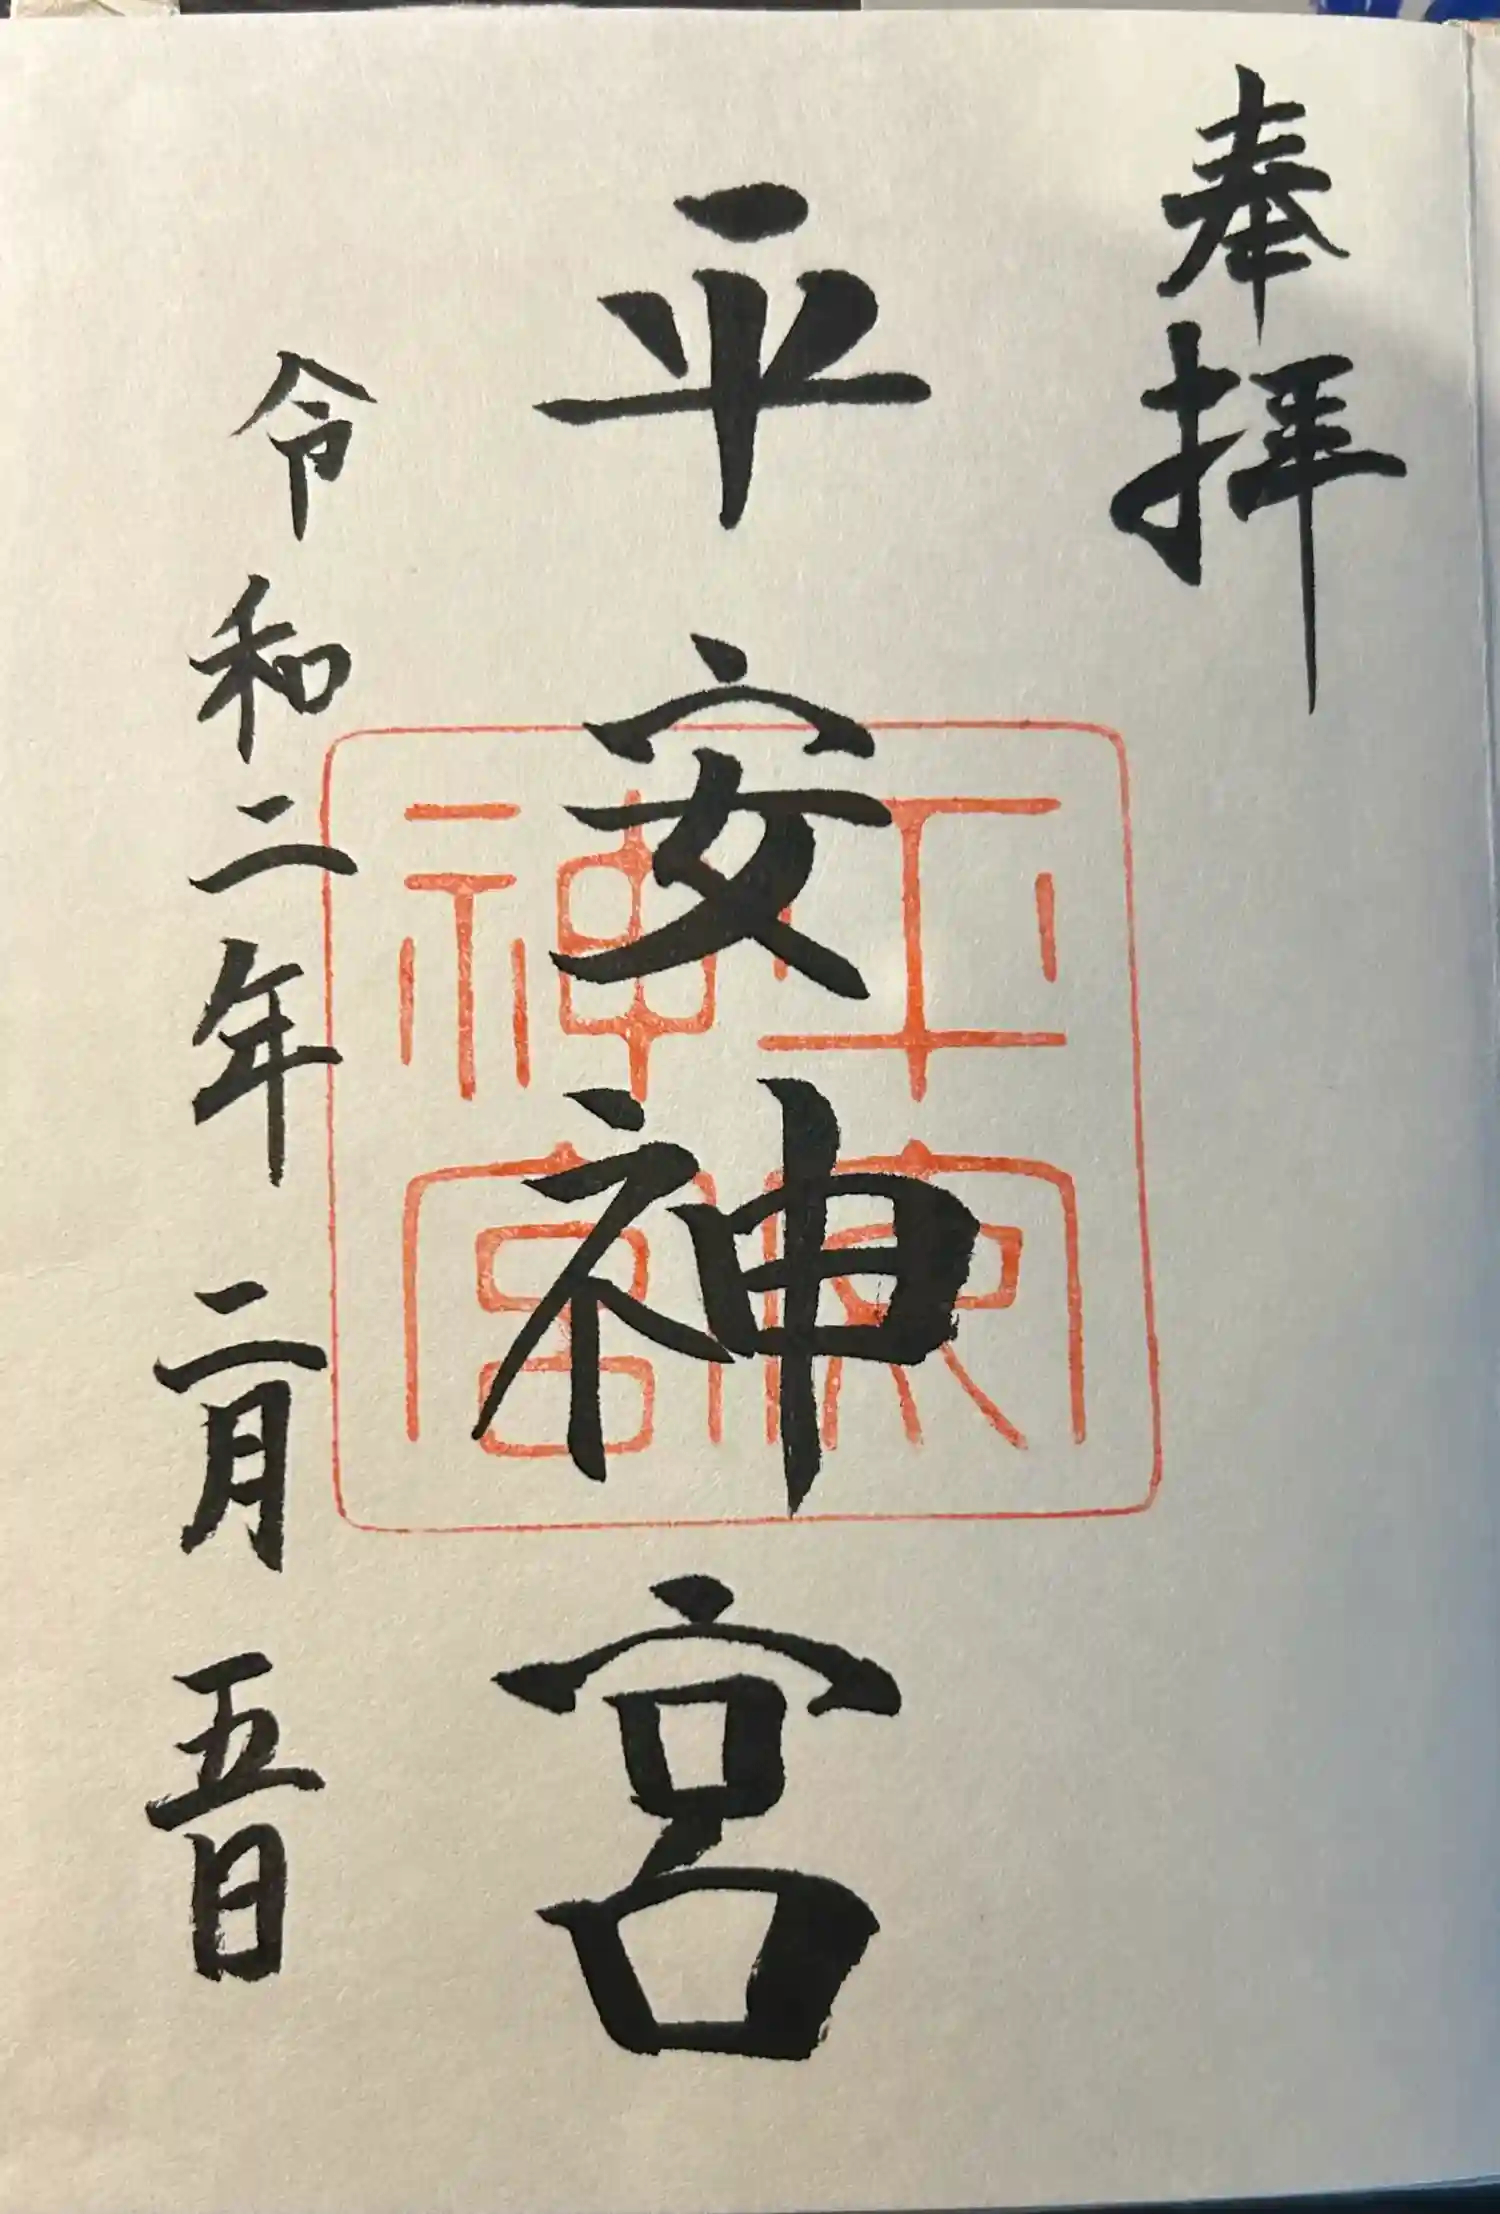 奉拝
平安神宮
平安神宮
令和二年二月五日